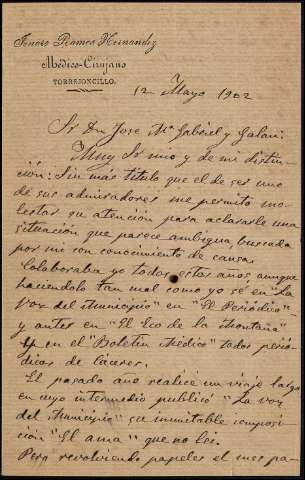 Jenaro Ramos Hernandez
Médico-Cirujano
TORREJONCILLO.
12 Mayo 1902
Sr Dn Jose Mª Gabriel y Galan:
Muy Sr mio y de mi distin
cion: Sin más titulo que el de ser uno
de sus admiradores me permito mo-
lestar su atención para aclararle una
situación que parece ambigua, buscada
por mi con conocimiento de causa.
Colaboraba yo todos estos años aunque
haciendolo tan mal como yo sé en "La
Voz del Municipio" en "El Periódico"
y antes en "El Eco de la Montaña"
y en el "Boletin Médico" todos perió-
dicos de Cáceres.
El pasado año realicé un viaje largo
en cuyo intermedio publicó "La voz
del Municipio" su inimitable composi
ción "El ama" que no lei.
Pero revolviendo papeles el mes pa-